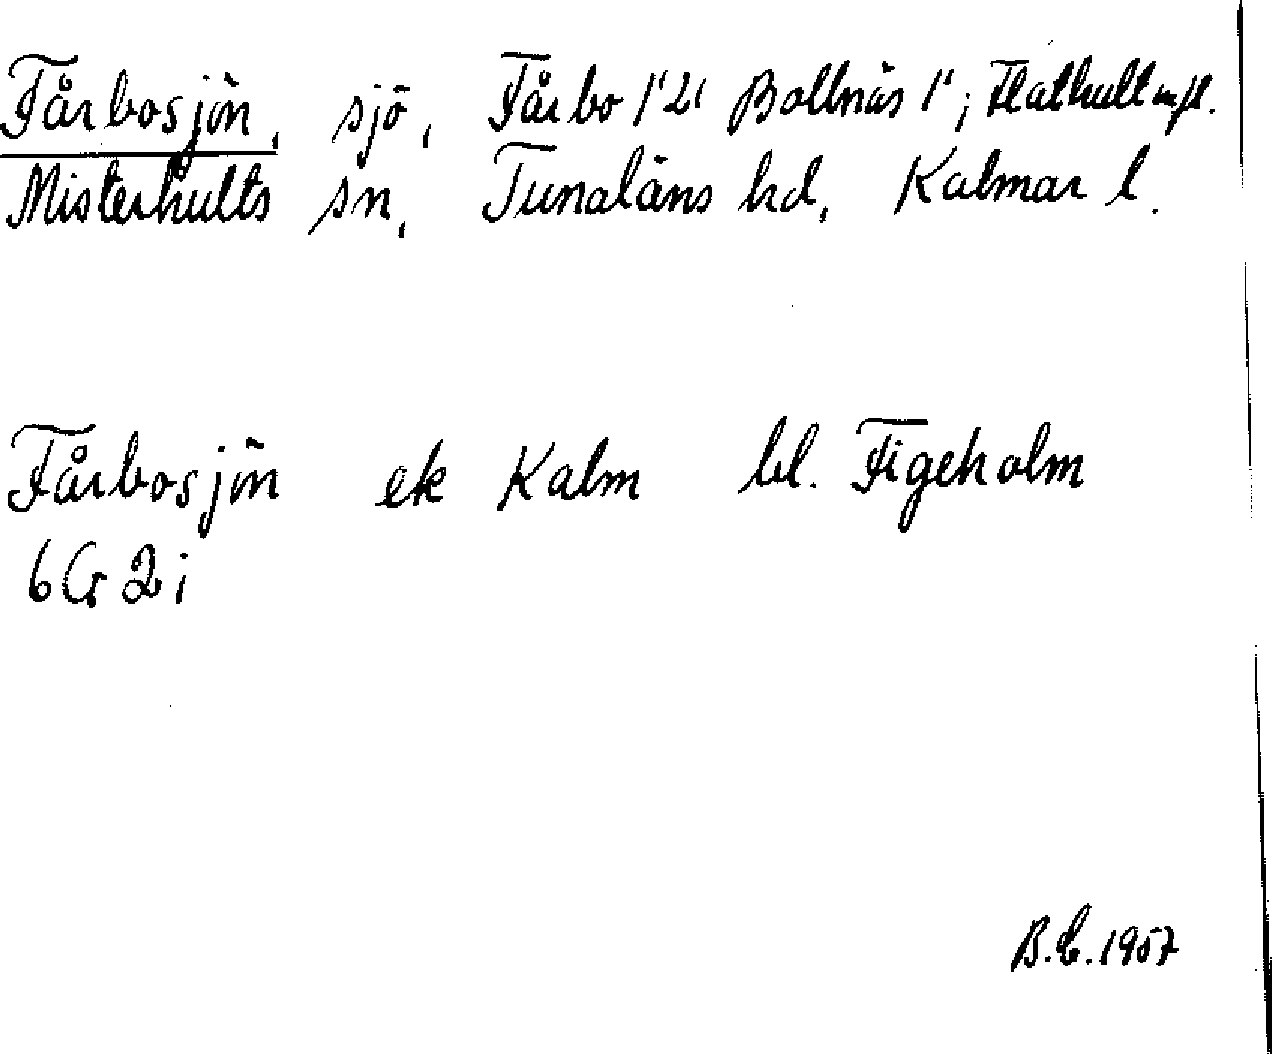 Fårbosjön, sjö, Fårbo 1'2' Bollnäs 1'; Flathult m fl.
Misterhults sn, Tunaläns hd, Kalmar l.
Fårbosjön ek Kalm bl. Figeholm
6G 2i
B.C. 1957